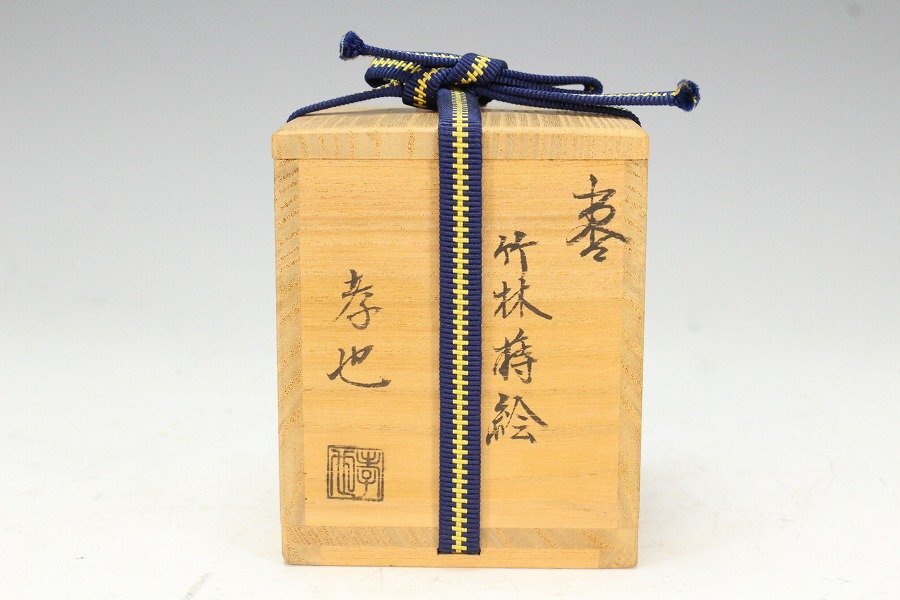 棗
竹林蒔絵
孝也
孝也